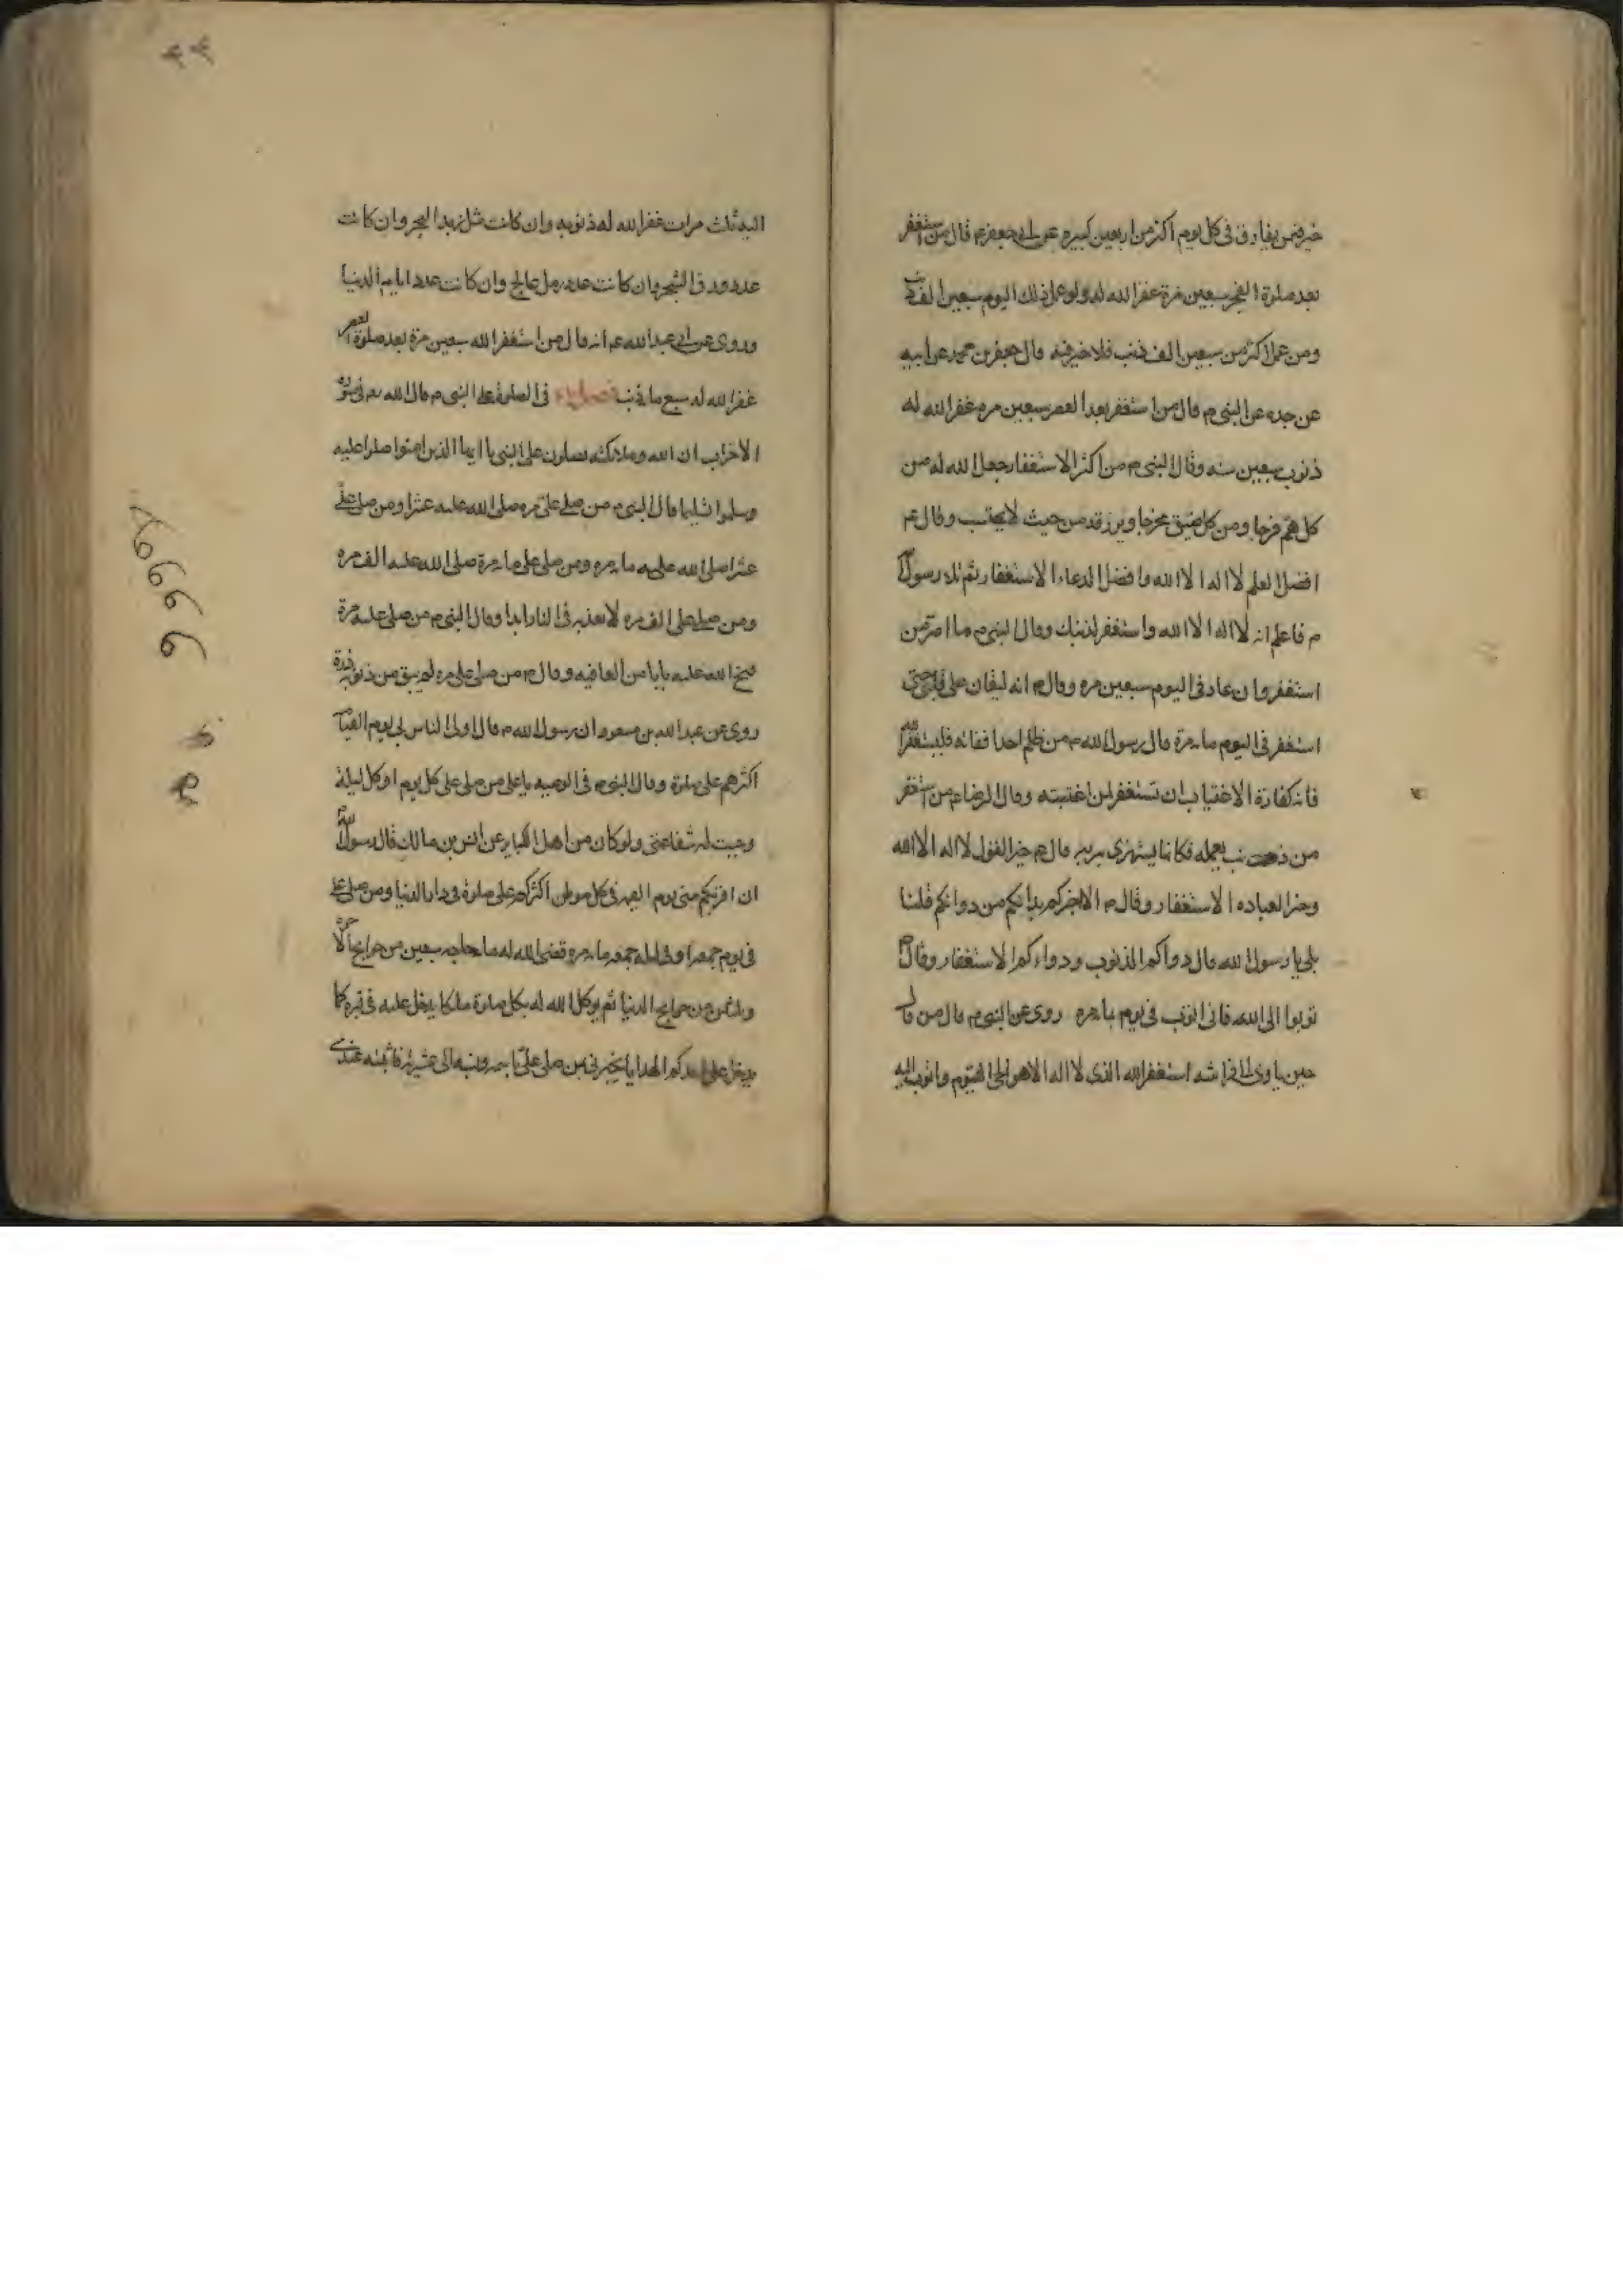 خير فيمن يقارف فى كل يوم اكثر من اربعين كبيره عن ابى جعفر ع قال من استغفر
بعد صلوة الفجر سبعين مرة غفر الله له ولو عمل ذلك اليوم سبعين الف ذنب
ومن عمل اكثر من سبعين الف ذنب فلا خير فيه قال جعفر بن محمد عن ابيه
عن جده عن النبى م قال من استغفر بعد العصر سبعين مره غفر الله له
ذنوب سبعين سنه وقال النبى م من اكثر الاستغفار جعل الله له من
كل هم فرجا ومن كل ضيق مخرجا ويرزقه من حيث لا يحتسب وقال ع
افضل العلم لا اله الا الله وافضل الدعاء الاستغفار ثم تلا رسول الله
م فاعلم انه لا اله الا الله واستغفر لذنبك وقال النبى م ما اصر من
استغفر وان عاد فى اليوم سبعين مره وقال م انه ليغان على قلبى حتى
استغفر فى اليوم مايه مرة قال رسول الله م من ظلم احدا ففاته فليستغفر الله
فانه كفارة الاغتياب ان تستغفر لمن اغتبته وقال الرضا ع من استغفر
من ذنب يعمله فكانما يستهزى بربه قال ع خير القول لا اله الا الله
وخير العباده الاستغفار وقال م الا اخبركم بدائكم من دوائكم قلنا
بلى يا رسول الله قال دواكم الذنوب ودواءكم الاستغفار وقال م
توبوا الى الله فانى اتوب فى يوم مايه مره روى عن النبى م قال من قال
حين ياوى الى فراشه استغفر الله الذى لا اله الا هو الحى القيوم واتوب اليه
٤٤
اليه ثلث مرات غفر الله له ذنوبه وان كانت مثل زبد البحر وان كانت
عدد ورق الشجر وان كانت عدد رمل عالج وان كانت عدد ايام الدنيا
وروى عن ابى عبد الله ع انه قال من استغفر الله سبعين مرة بعد صلوة العصر
غفر الله له سبع مايه ذنب فى الصلوة على النبى م قال الله تع فى سورة
الاحزاب ان الله وملائكته يصلون على النبى يا ايها الذين امنوا صلوا عليه
وسلموا تسليما قال النبى م من صلى على مره صلى الله عليه عشرا ومن صلى على
عشرا صلى الله عليه مايه مره ومن صلى على مايه مرة صلى الله عليه الف مره
ومن صلى على الف مره لا يعذبه فى النار ابدا وقال النبى م من صلى على مرة
فتح الله عليه بابا من العافيه وقال م من صلى على مره لم يبق من ذنوبه ذرة
روى عن عبد الله بن مسعود ان رسول الله م قال اولى الناس بى يوم القيامة
اكثرهم على صلوة وقال النبى م فى الوصيه يا على من صلى على كل يوم او كل ليلة
وجبت له شفاعتى ولو كان من اهل الكباير عن انس بن مالك قال رسول الله
ان اقربكم منى يوم القيمة فى كل موطن اكثركم على صلوة فى دار الدنيا ومن صلى على
فى يوم جمعه او فى ليلة جمعه مايه مره قضى الله له مايه حاجه سبعين من حوايج الاخره
وثلثين من حوايج الدنيا ثم يوكل الله له بكل صلوة ملكا يدخل عليه فى قبره كما
يدخل على احدكم الهدايا يخبرنى من صلى على باسمه ونسبه الى عشيرته فاثبته عندى